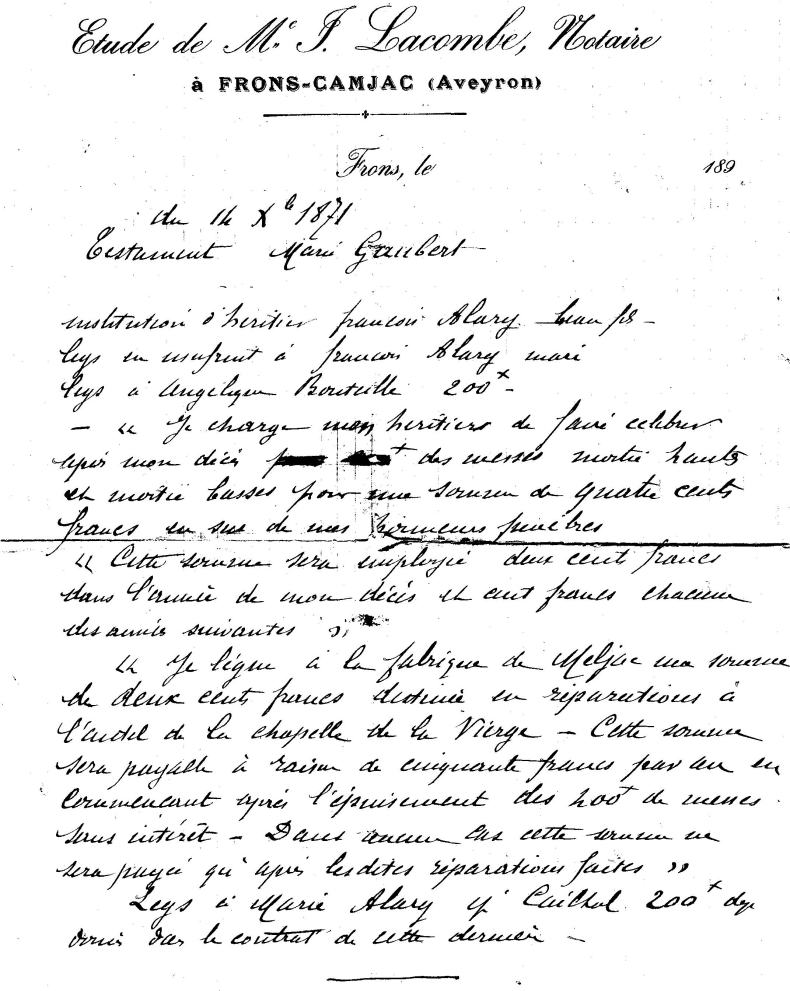 Etude de Me. F. Lacombe, Notaire
à FRONS-CAMJAC (Aveyron)
Frons, le 189
du 14 Xbe 1871
Testament Marie Gaubert
institution d'heritier francois Alary beau fs -
legs en usufruit à francois Alary mari
legs à Angelique Bouteille 200+ -
- « Je charge mes heritiers de faire celebrer
après mon décès des messes moitié hautes
et moitié basses pour une somme de quatre cents
francs en sus de mes honneurs funèbres
« Cette somme sera employée deux cent francs
dans l'année de mon décès et cent francs chacune
des années suivantes »
« Je lègue à la fabrique de Meljac une somme
de deux cents francs destinée en réparations à
l'autel de la chapelle de la Vierge - Cette somme
sera payable à raison de cinquante francs par an en
commencant après l'épuisement des 400+ de messes
sans intérêt - Dans aucun cas cette somme ne
sera payée qu'après lesdites réparations faites »
Legs à Marie Alary ej Cailhol 200+ deja
donnés dans le contrat de cette dernière -